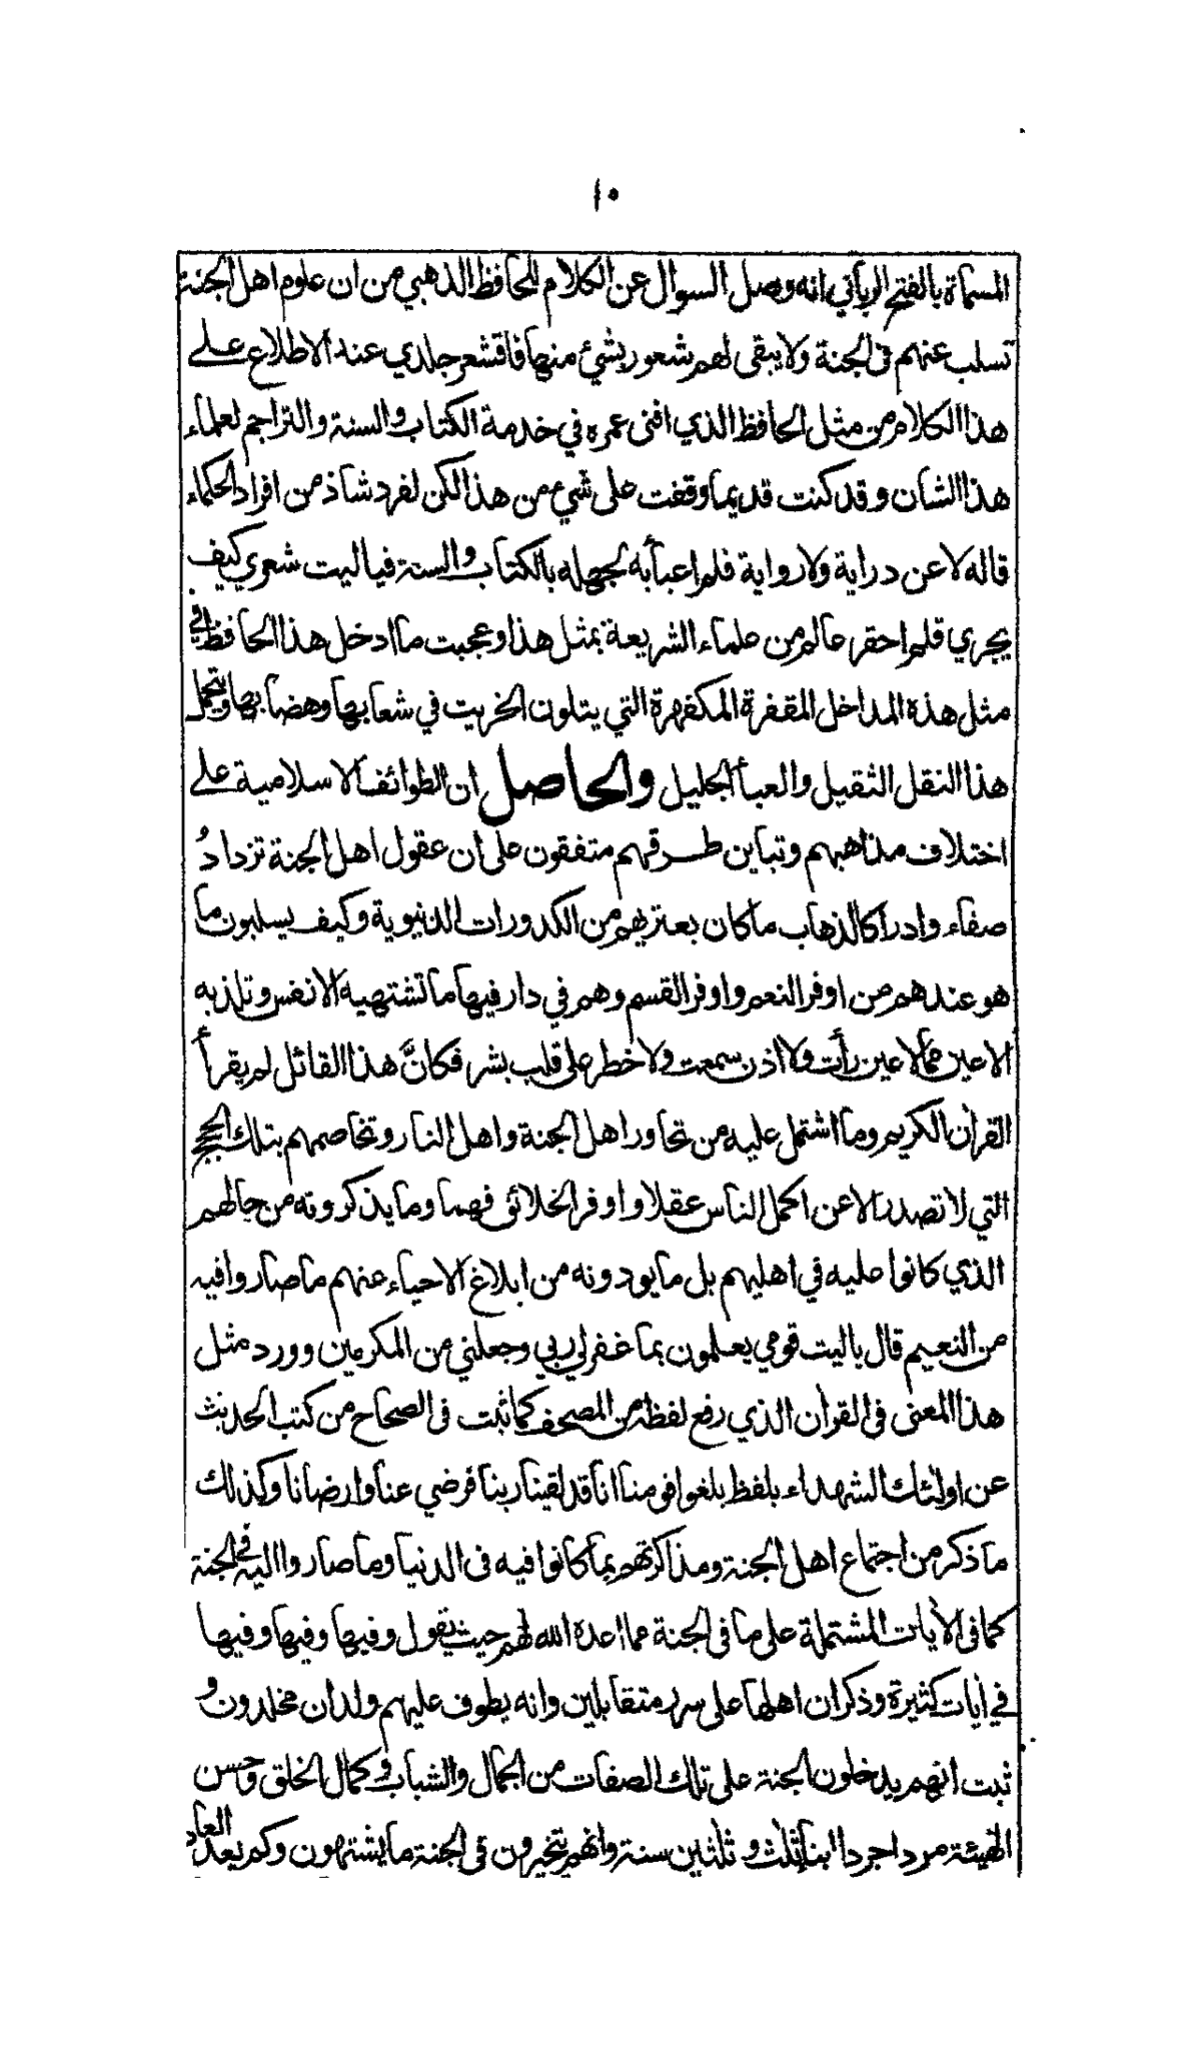 ١٠
المسماة بالفتح الرباني انه وصل السوال عن الكلام للحافظ الذهبي من ان علوم اهل الجنة
تسلب عنهم في الجنة ولا يبقى لهم شعور بشئ منها فاقشعر جلدي عند الاطلاع على
هذا الكلام من مثل الحافظ الذي افنى عمره في خدمة الكتاب والسنة والتراجم لعلماء
هذا الشان وقد كنت قديما وقفت على شيء من هذا لكن لفرد شاذ من افراد الحكماء
قاله لا عن دراية ولا رواية فلم اعبأ به لجهله بالكتاب والسنة فياليت شعري كيف
يجري قلم احقر عالم من علماء الشريعة بمثل هذا وعجبت ما ادخل هذا الحافظ في
مثل هذه المداخل المقفرة المكفهرة التي يتلون الخريت في شعابها وهضابها ويتحمل
هذا النقل الثقيل والعبأ الجليل والحاصل ان الطوائف الاسلامية على
اختلاف مذاهبهم وتباين طرقهم متفقون على ان عقول اهل الجنة تزدادُ
صفاء وادراكا لذهاب ما كان يعتريهم من الكدورات الدنيوية وكيف يسلبون ما
هو عندهم من اوفر النعم واوفر القسم وهم في دار فيها ما تشتهيه الانفس وتلذ به
الاعين مما لا عين رأت ولا اذن سمعت ولا خطر على قلب بشر فكانَّ هذا القائل لم يقرأ
القران الكريم وما اشتمل عليه من تحاور اهل الجنة واهل النار وتخاصمهم بتلك الحجج
التي لا تصدر الا عن اكمل الناس عقلا واوفر الخلائق فهما وما يذكرونه من حالهم
الذي كانوا عليه في اهليهم بل ما يودونه من ابلاغ الاحياء عنهم ما صاروا فيه
من النعيم قال ياليت قومي يعلمون بما غفر لي ربي وجعلني من المكرمين وورد مثل
هذا المعنى في القران الذي رفع لفظه من المصحف كما ثبت في الصحاح من كتب الحديث
عن اولئك الشهداء بلفظ بلغوا قومنا انا قد لقينا ربنا فرضي عنا وارضانا وكذلك
ما ذكر من اجتماع اهل الجنة ومذاكرتهم بما كانوا فيه في الدنيا وما صاروا اليه في الجنة
كما في الأيات المشتملة على ما في الجنة مما اعده الله لهم حيث يقول وفيها وفيها وفيها
في ايات كثيرة وذكر ان اهلها على سرر متقابلين وانه يطوف عليهم ولدان مخلدون و
ثبت انهم يدخلون الجنة على تلك الصفات من الجمال والشباب و كمال الخلق وحسن
الهيئة مردا جردا ابناء ثلث و ثلثين سنة وانهم يتخيرون في الجنة ما يشتهون وكم يعد العاد